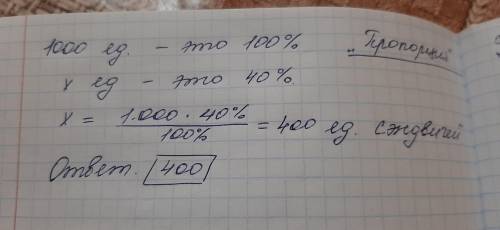 1000 ед. – это 100% „Пропорций"
х ед – это 40%.
х = 1.000 · 40% / 100% = 400 ед. сэндвичей
Ответ. 400